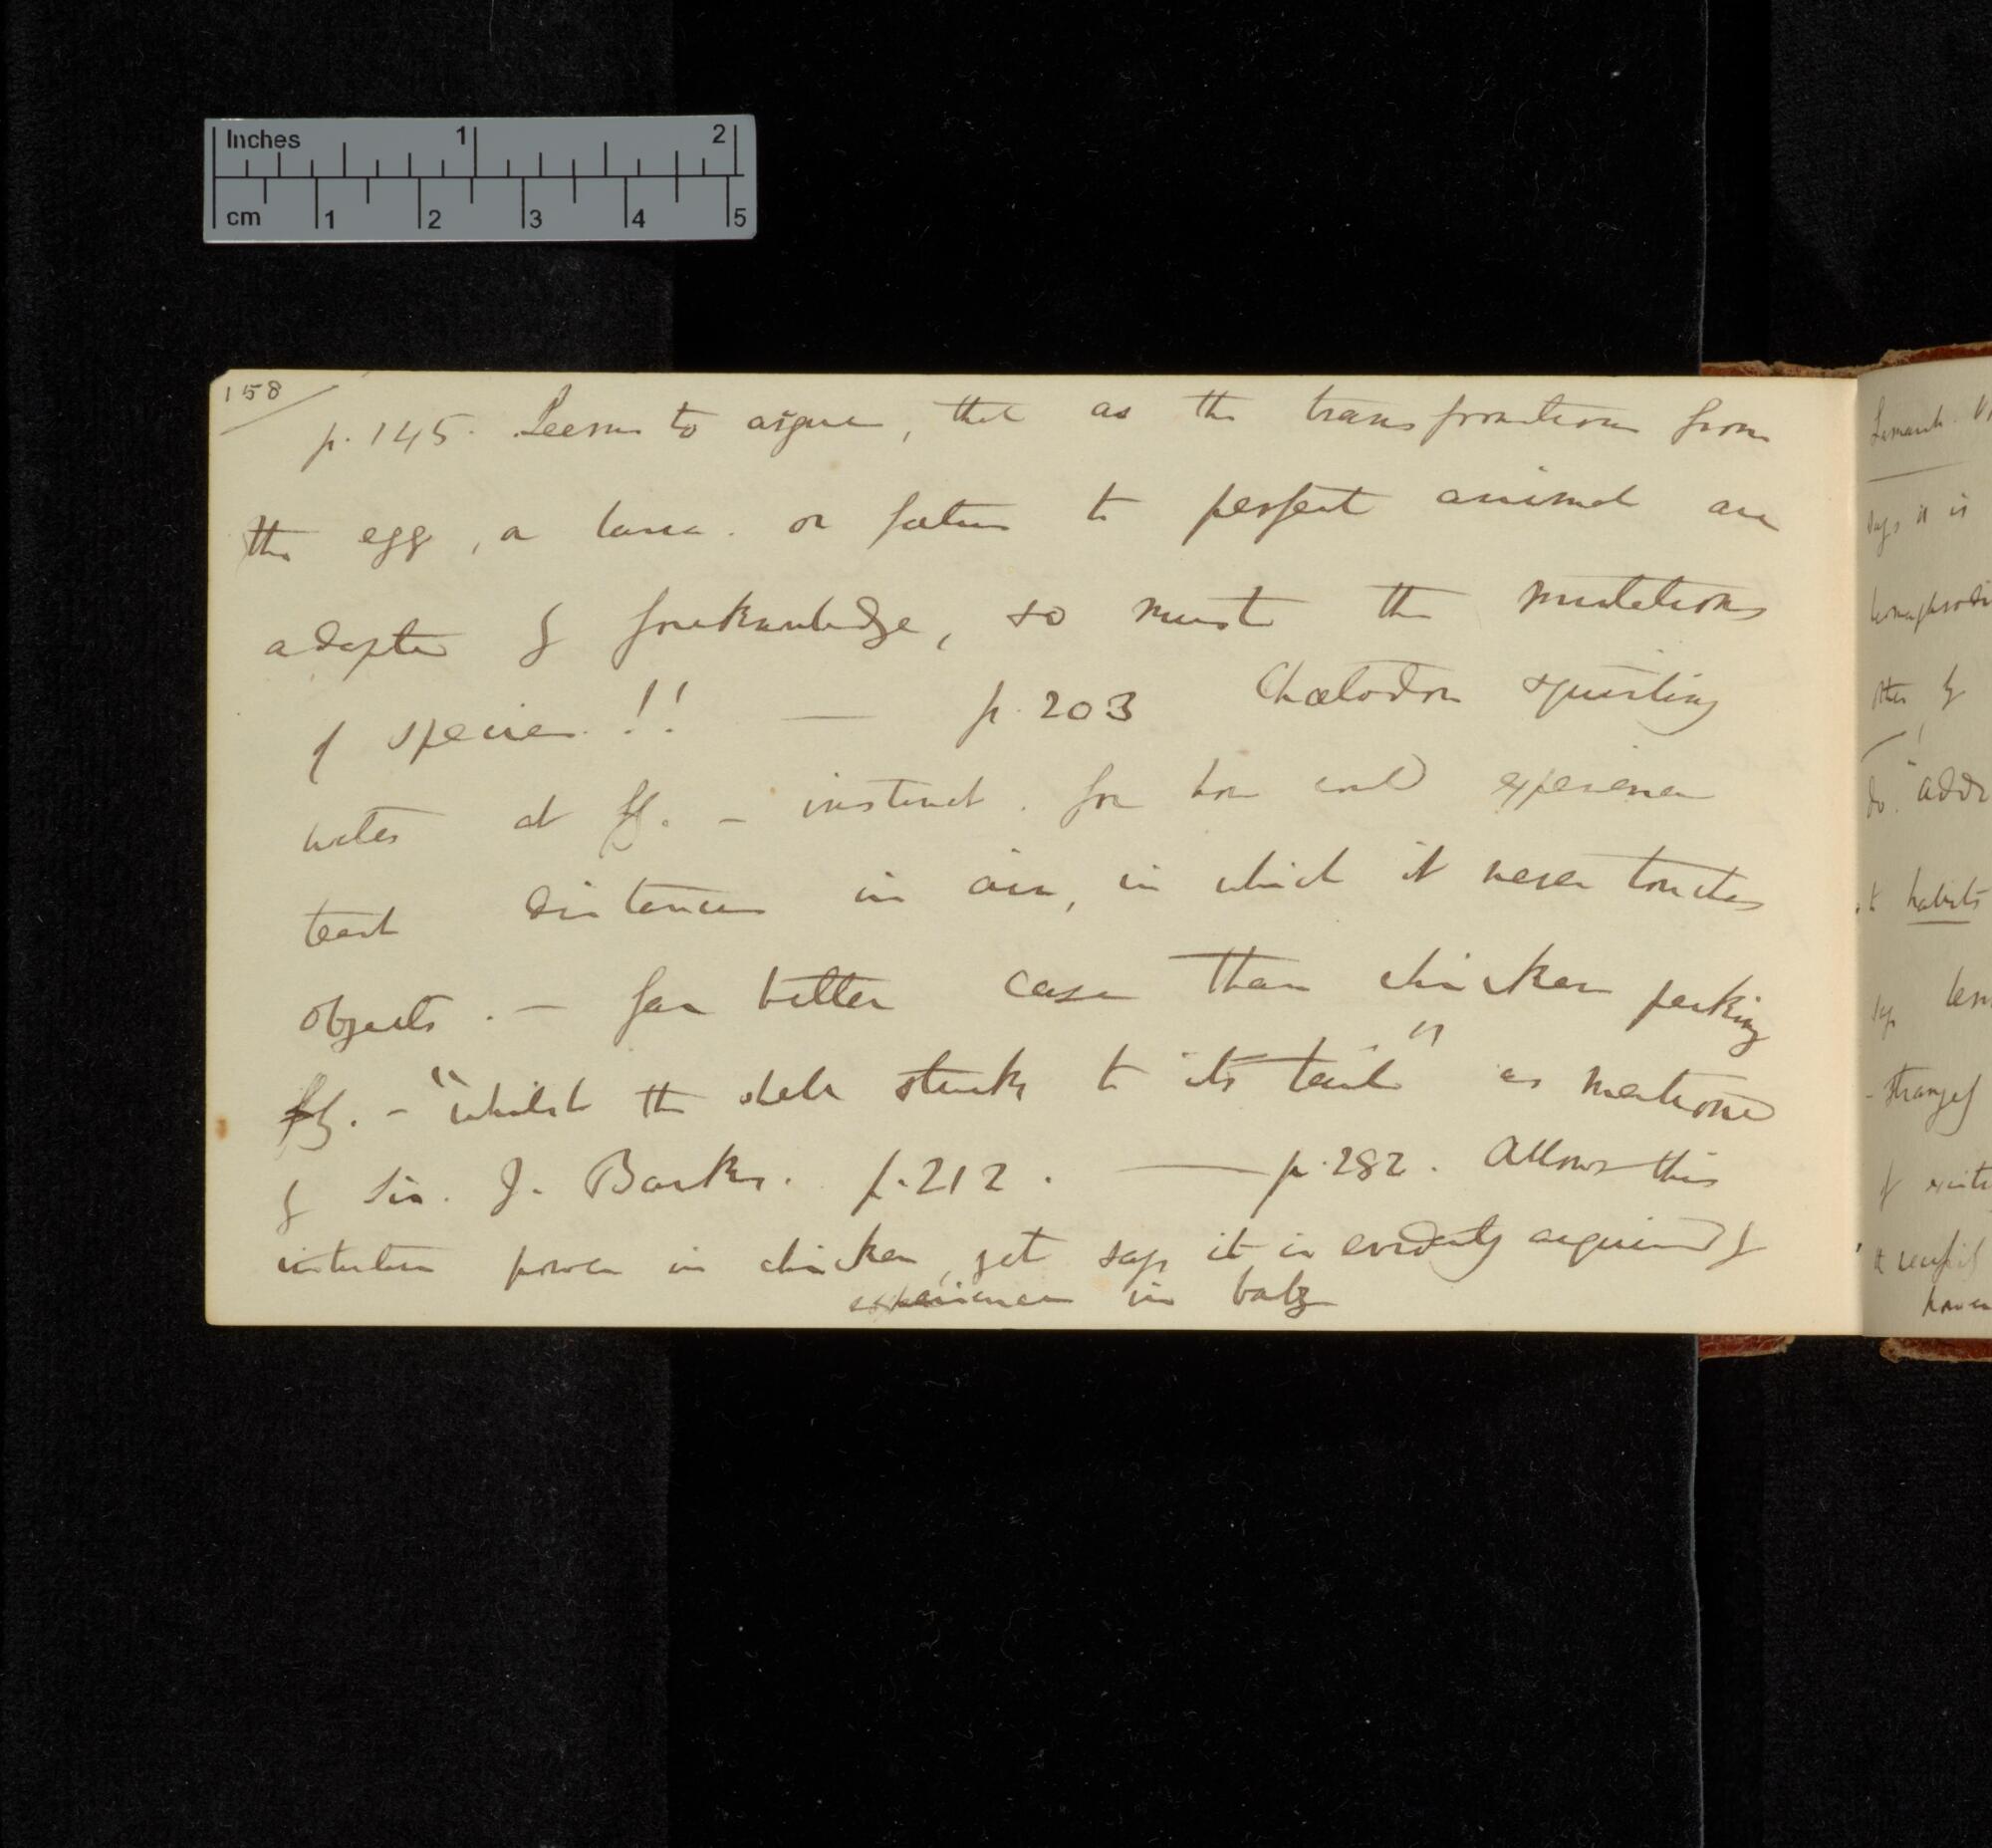 Inches 1 2
cm 1 2 3 4 5
158
p. 145. Seems to argue, that as the transformations from
the egg, a larva. or foetus to perfect animal are
adapted by foreknowledge, so must the mutations
of species.!! — p. 203 Chætodon squirting
water at fly. — instinct. for how could experience
teach distances in air, in which it never touches
objects. — far better case than chicken pecking
fly. — "whilst the shell sticks to its tail" as mentioned
by Sir. J. Banks. p. 212. — p. 282. Allows this
intuitive power in chicken, yet says it is evidently acquired by
experience in baby
Lamarck.
says it is
other by
do. "addr
habits
says
strangely
of
it